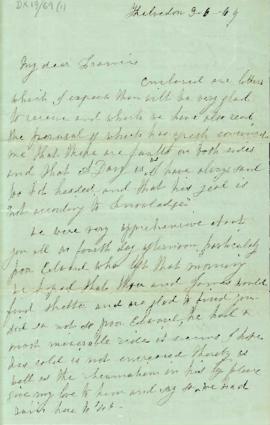 DX19/69/11
Thelvedon 3-6-69
My dear Francis
Enclosed are letters
which I expect thou will be very glad
to receive and which we have also read
the perusal of which has fresh convinced
me that there are faults on both sides
and that as I have always said
headed, and that his zeal is
"not according to knowledge"
We were very apprehensive about
you all on fourth day afternoon, particularly
poor Edward who left that morning
we hoped that thou and would
find shelter and are glad to find you
did so not so poor Edward, he had a
most miserable ride it seems I hope
his cold is not increased thereby as
well as the rheumatism in his please
give my love to him and say so, we had
rain here to